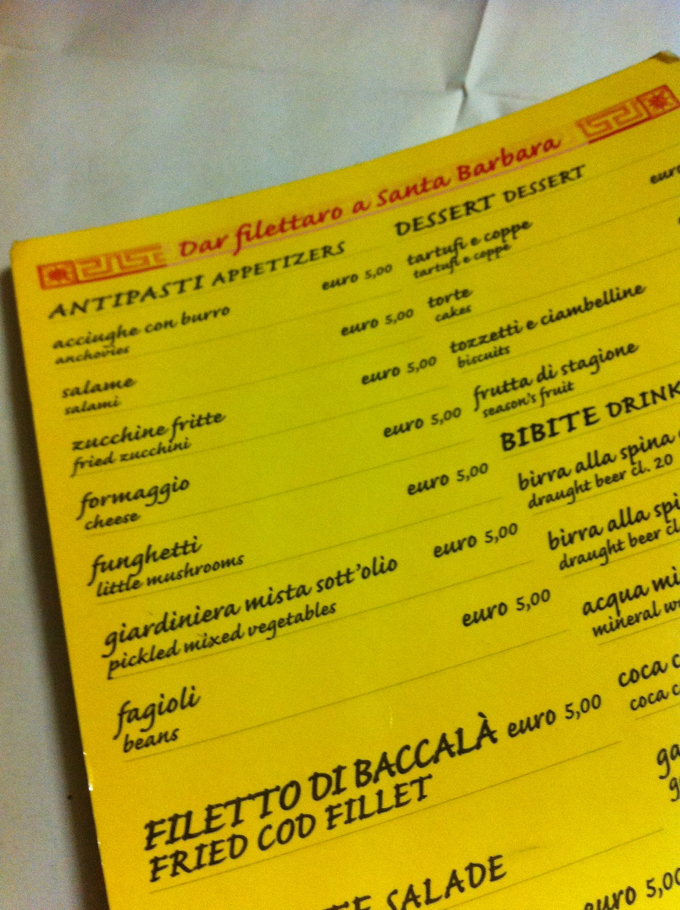 Dar filettaro a Santa Barbara
ANTIPASTI APPETIZERS
acciughe con burro euro 5,00
anchovies
salame euro 5,00
salami
zucchine fritte euro 5,00
fried zucchini
formaggio euro 5,00
cheese
funghetti euro 5,00
little mushrooms
giardiniera mista sott'olio euro 5,00
pickled mixed vegetables
fagioli euro 5,00
beans
FILETTO DI BACCALÀ euro 5,00
FRIED COD FILLET
SALADE
euro 5,00
DESSERT DESSERT
euro
tartufi e coppe
tartufi e coppe
torte
cakes
tozzetti e ciambelline
biscuits
frutta di stagione
season's fruit
BIBITE DRINK
birra alla spina
draught beer cl. 20
birra alla spi
draught beer cl
acqua mi
mineral w
coca c
coca c
ga